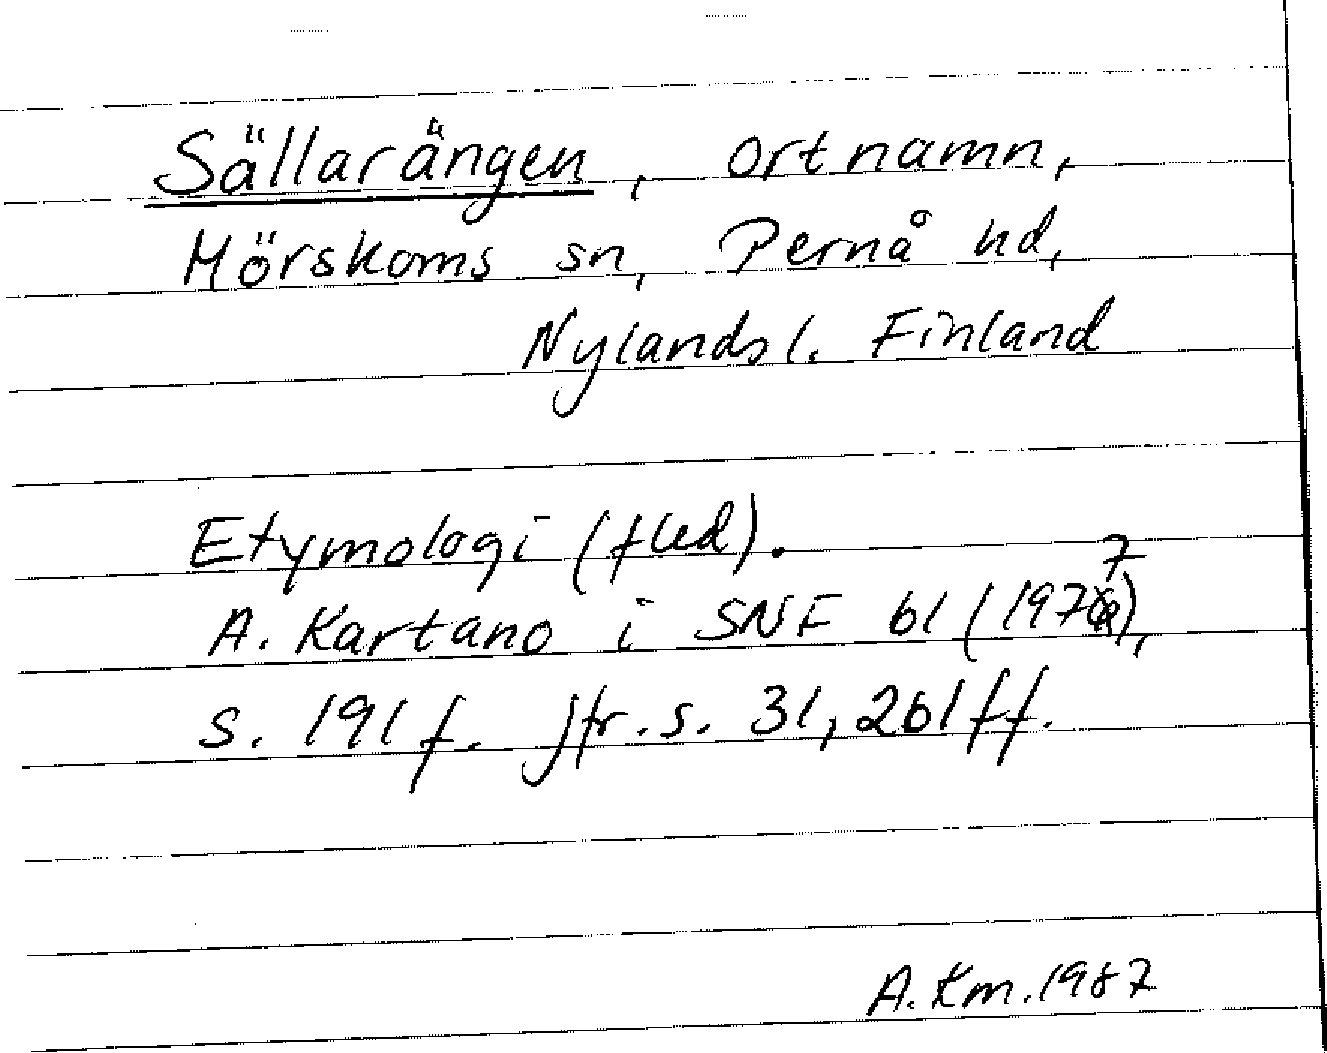 Sällarängen, ortnamn,
Mörskoms sn, Pernå hd,
Nylands l. Finland
Etymologi (fled).
A. Kartano i SNF 61 (1977),
s. 191 f. jfr. s. 31, 261 ff.
A. Km. 1987